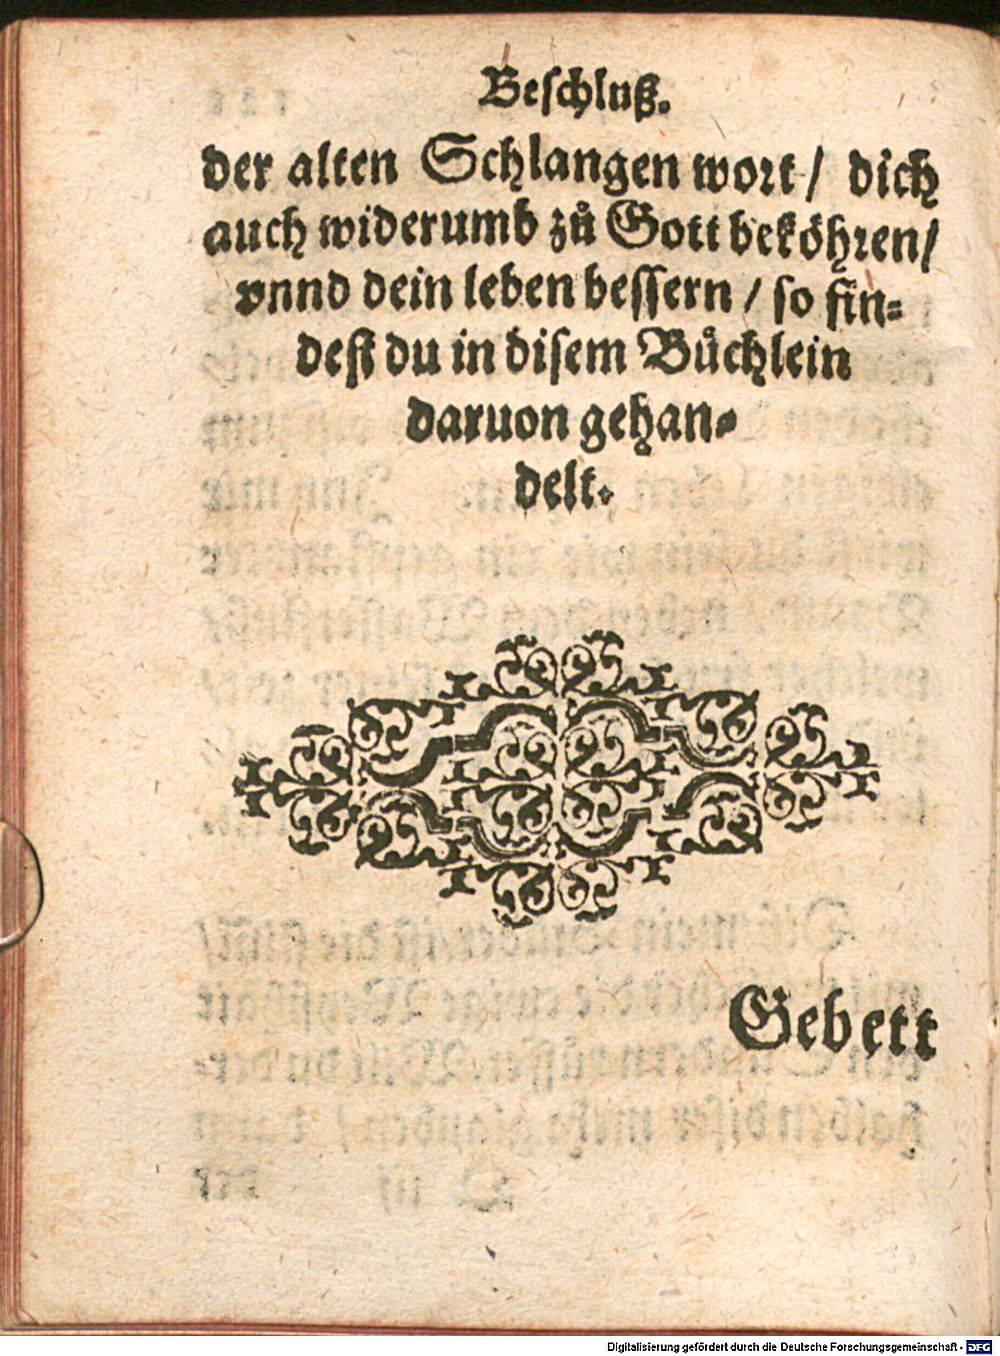 Beschluß.
der alten Schlangen wort/ dich
auch widerumb zů Gott beköhren/
vnnd dein leben bessern / so fin-
dest du in disem Bůchlein
daruon gehan-
delt.
Gebett
Digitalisierung gefördert durch die Deutsche Forschungsgemeinschaft - DFG